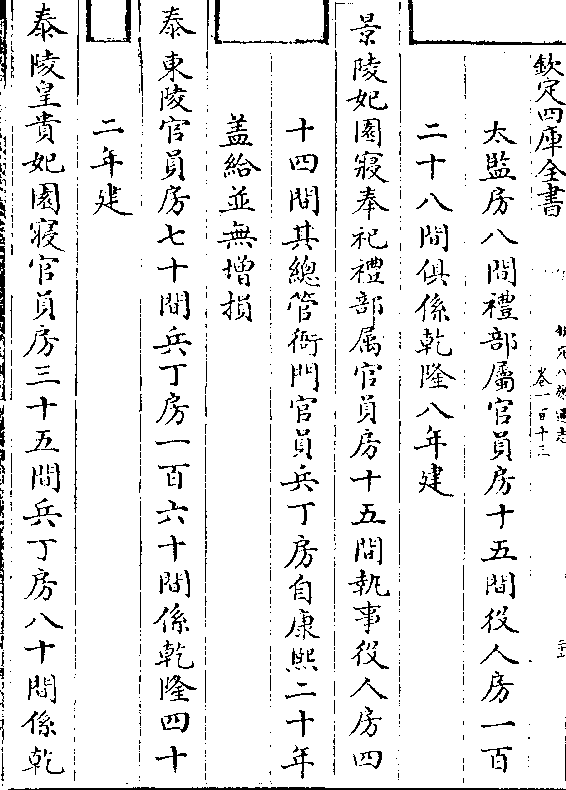 欽定四庫全書
欽定八旗通志
卷一百十三
太監房八間禮部屬官員房十五間役人房一百
二十八間俱係乾隆八年建
景陵妃園寢奉祀禮部属官員房十五間執事役人房四
十四間其總管衙門官員兵丁房自康熙二十年
蓋給並無增損
泰東陵官員房七十間兵丁房一百六十間係乾隆四十
二年建
泰陵皇貴妃園寢官員房三十五間兵丁房八十間係乾